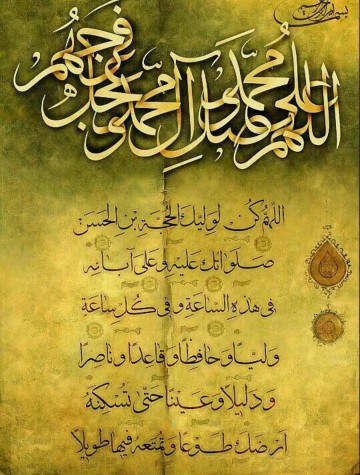 بسم الله الرحمن الرحیم
اللهم صل علی محمد و آل محمد و عجل فرجهم
اللهم کن لولیک الحجة بن الحسن
صلواتک علیه و علی آبائه
فی هذه الساعة و فی کل ساعة
ولیا و حافظا و قائدا و ناصرا
و دلیلا و عینا حتی تسکنه
ارضک طوعا و تمتعه فیها طویلا